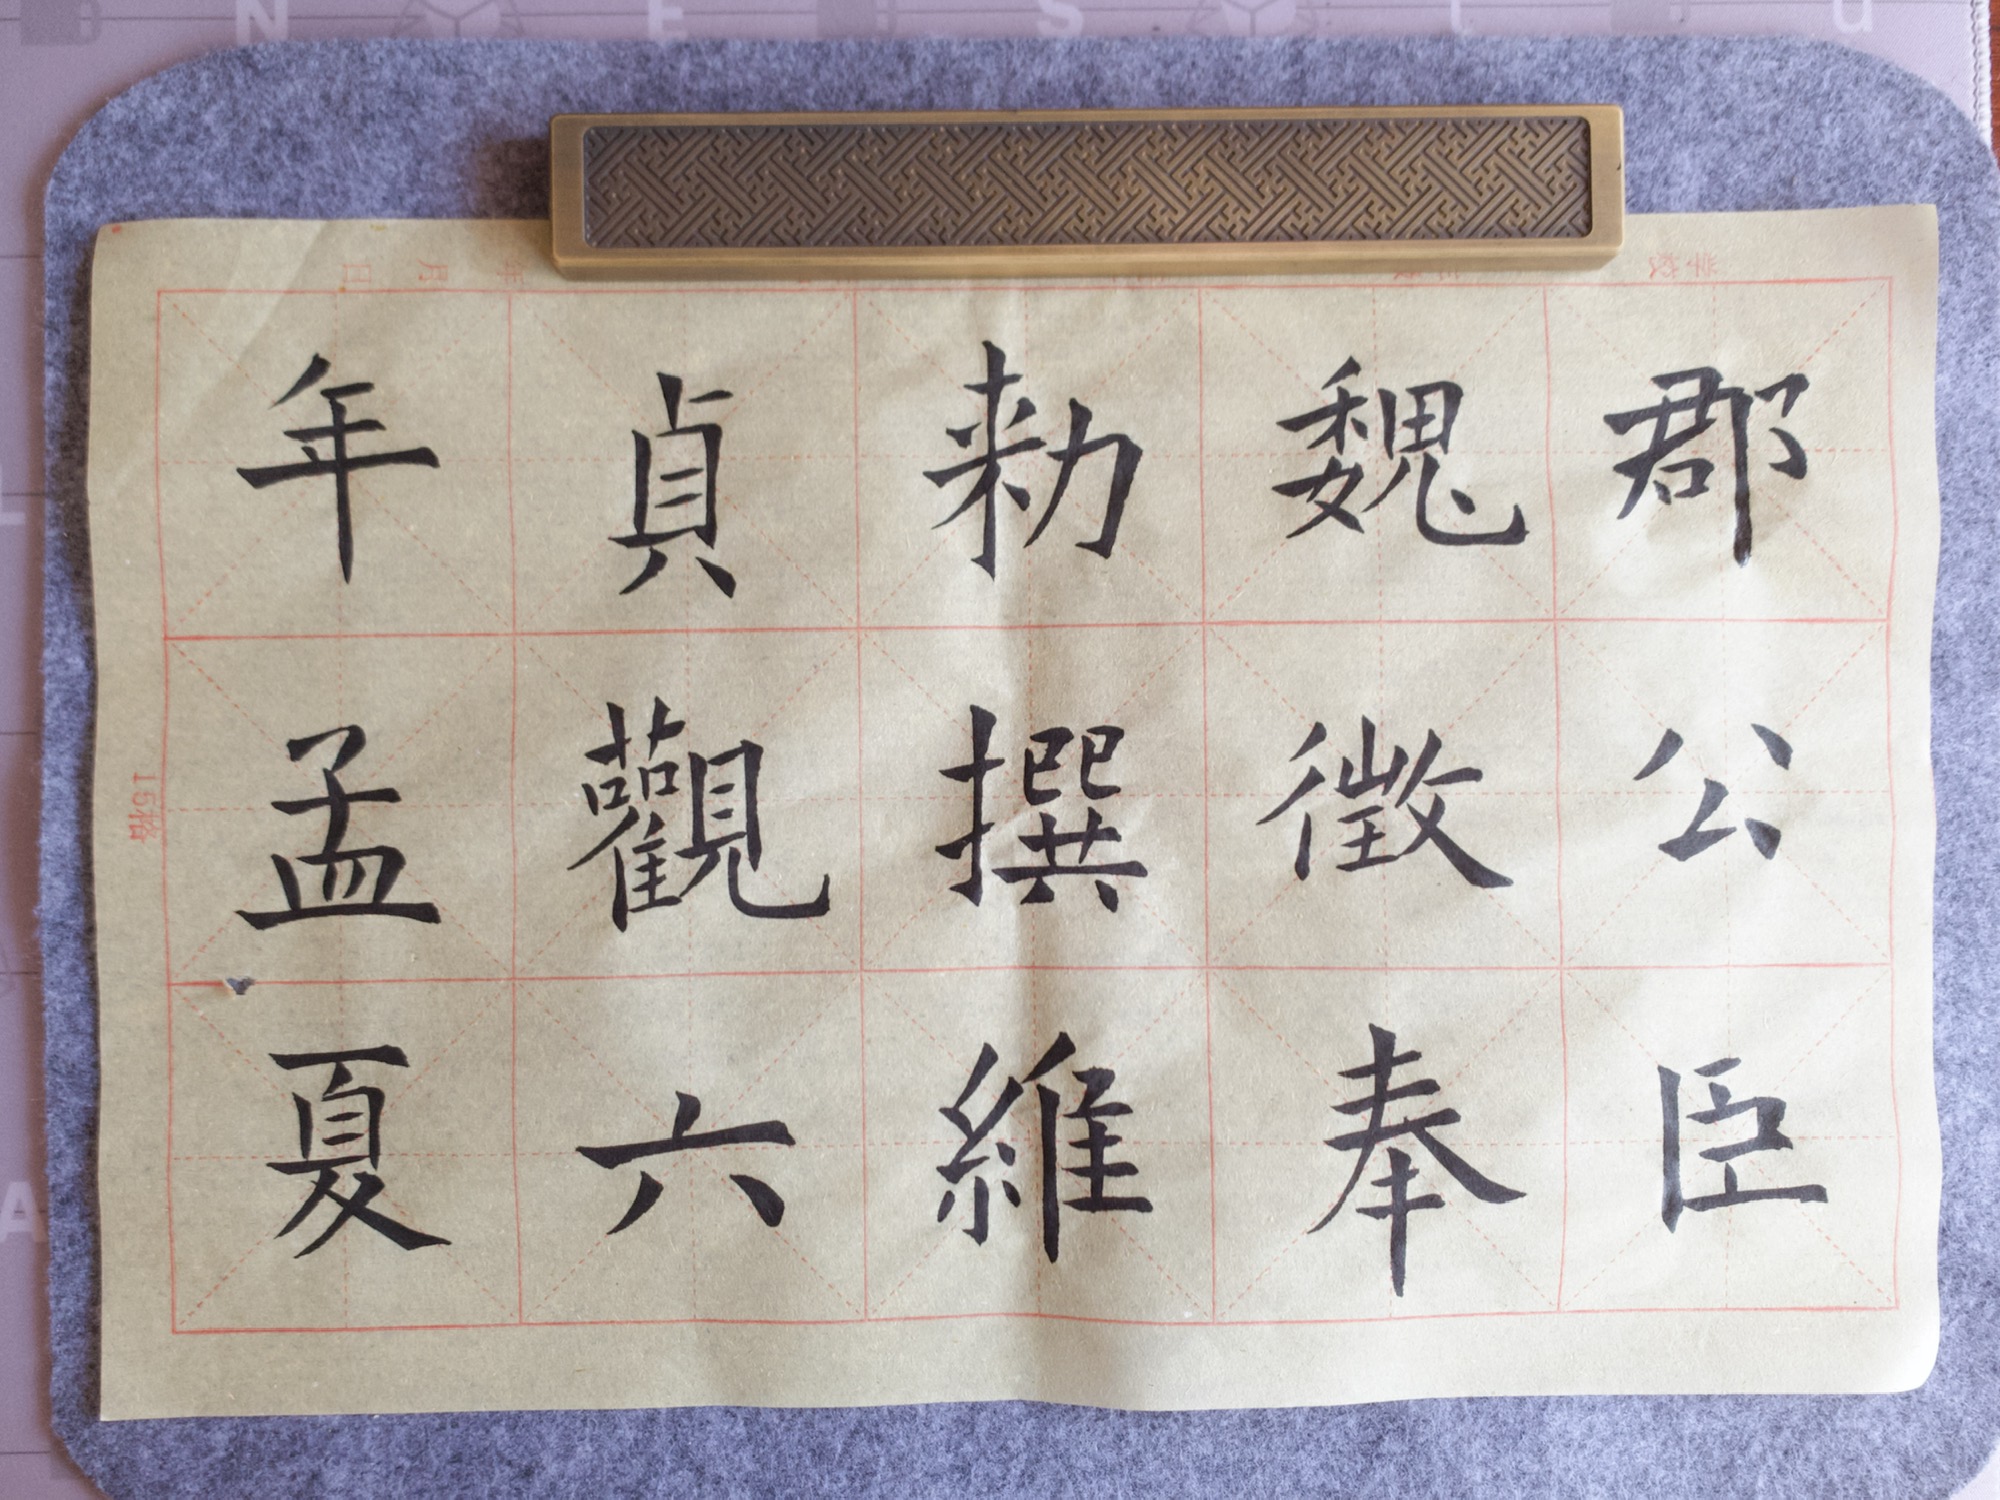 郡公臣
魏徵奉
勑撰維
貞觀六
年孟夏
15格
年 月 日
N E S